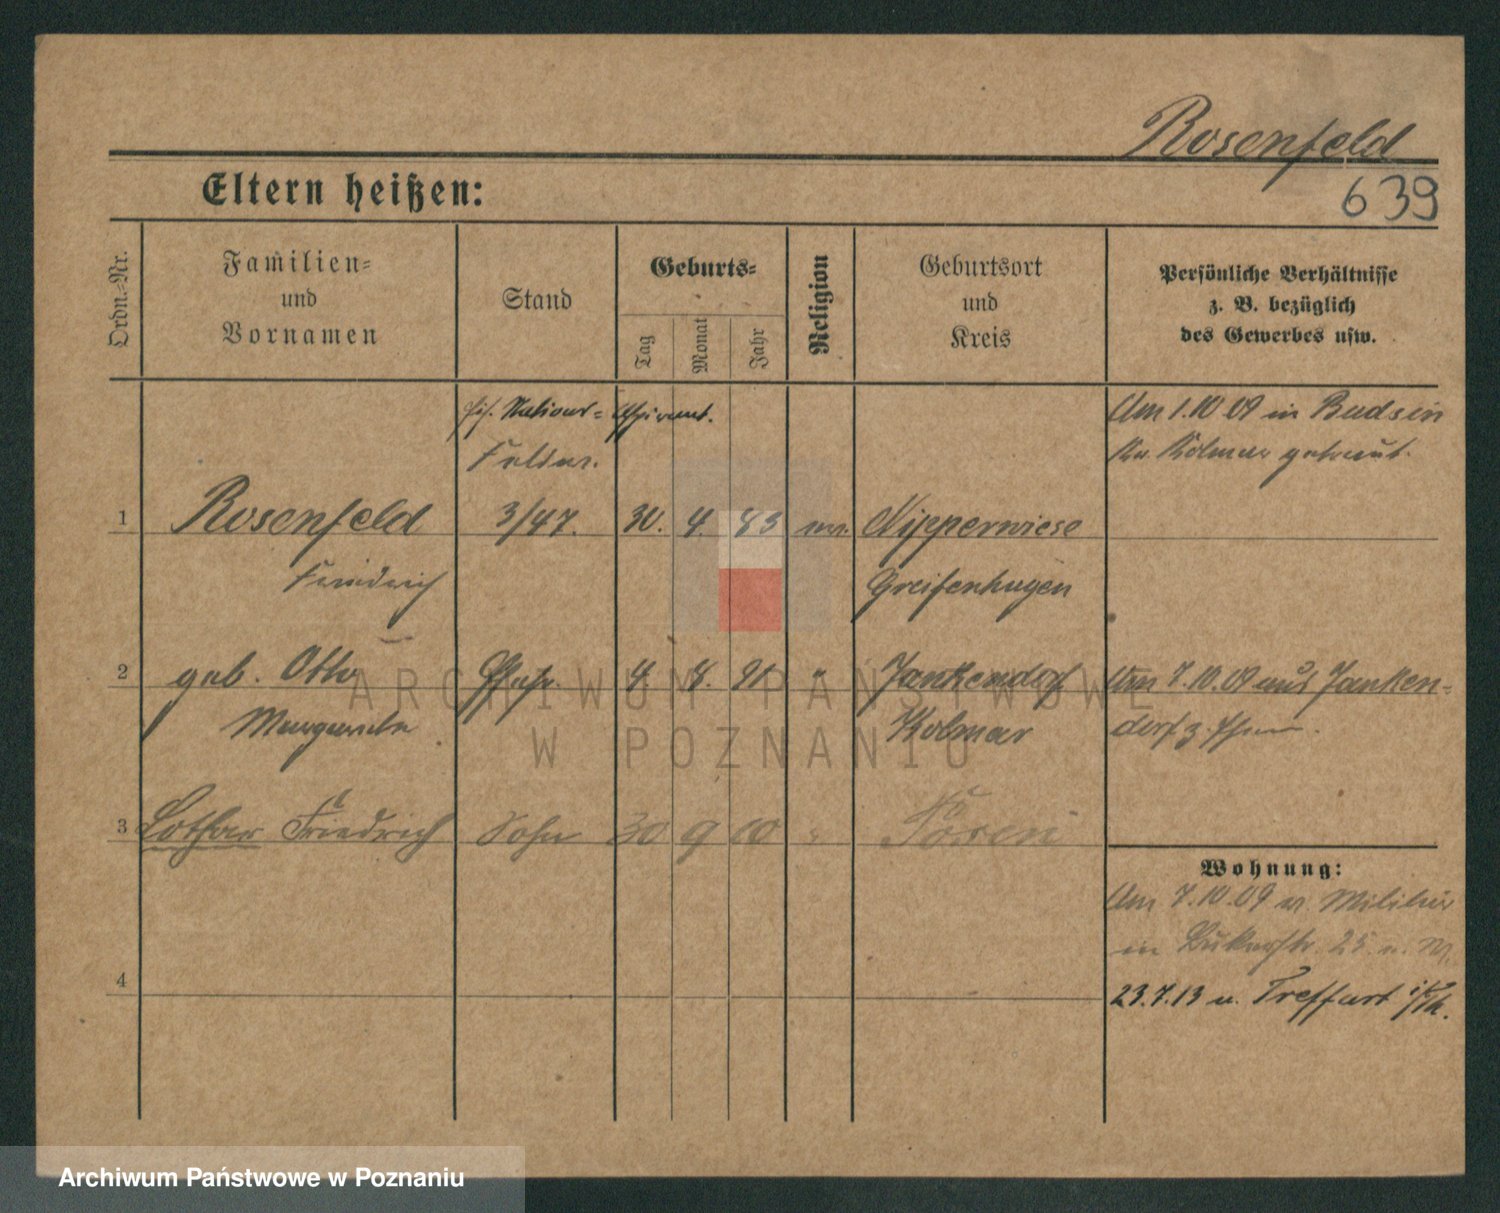 Rosenfeld
639
Eltern heißen:
Ordn.-Nr.
Familien-
und
Vornamen
Stand
Geburts-
Tag
Monat
Jahr
Religion
Geburtsort
und
Kreis
Persönliche Verhältnisse
z. B. bezüglich
des Gewerbes usw.
Am 1.10.09 in Budsin
Kr. Kolmar getraut.
1 Rosenfeld 3/47. 30. 4. 83 Nipperwiese
Friedrich Greifenhagen
2 geb. Otto 4. 8. " Jankendorf Am 7.10.09 aus Jankendorf
Margarete Kolmar
3 Lothar Friedrich Sohn 30 9 10 " Posen
Wohnung:
Am 7.10.09 v. Militär
in 25
4
23.7.13 n. Treffurt i/Th.
ARCHIWUM PAŃSTWOWE
W POZNANIU
Archiwum Państwowe w Poznaniu